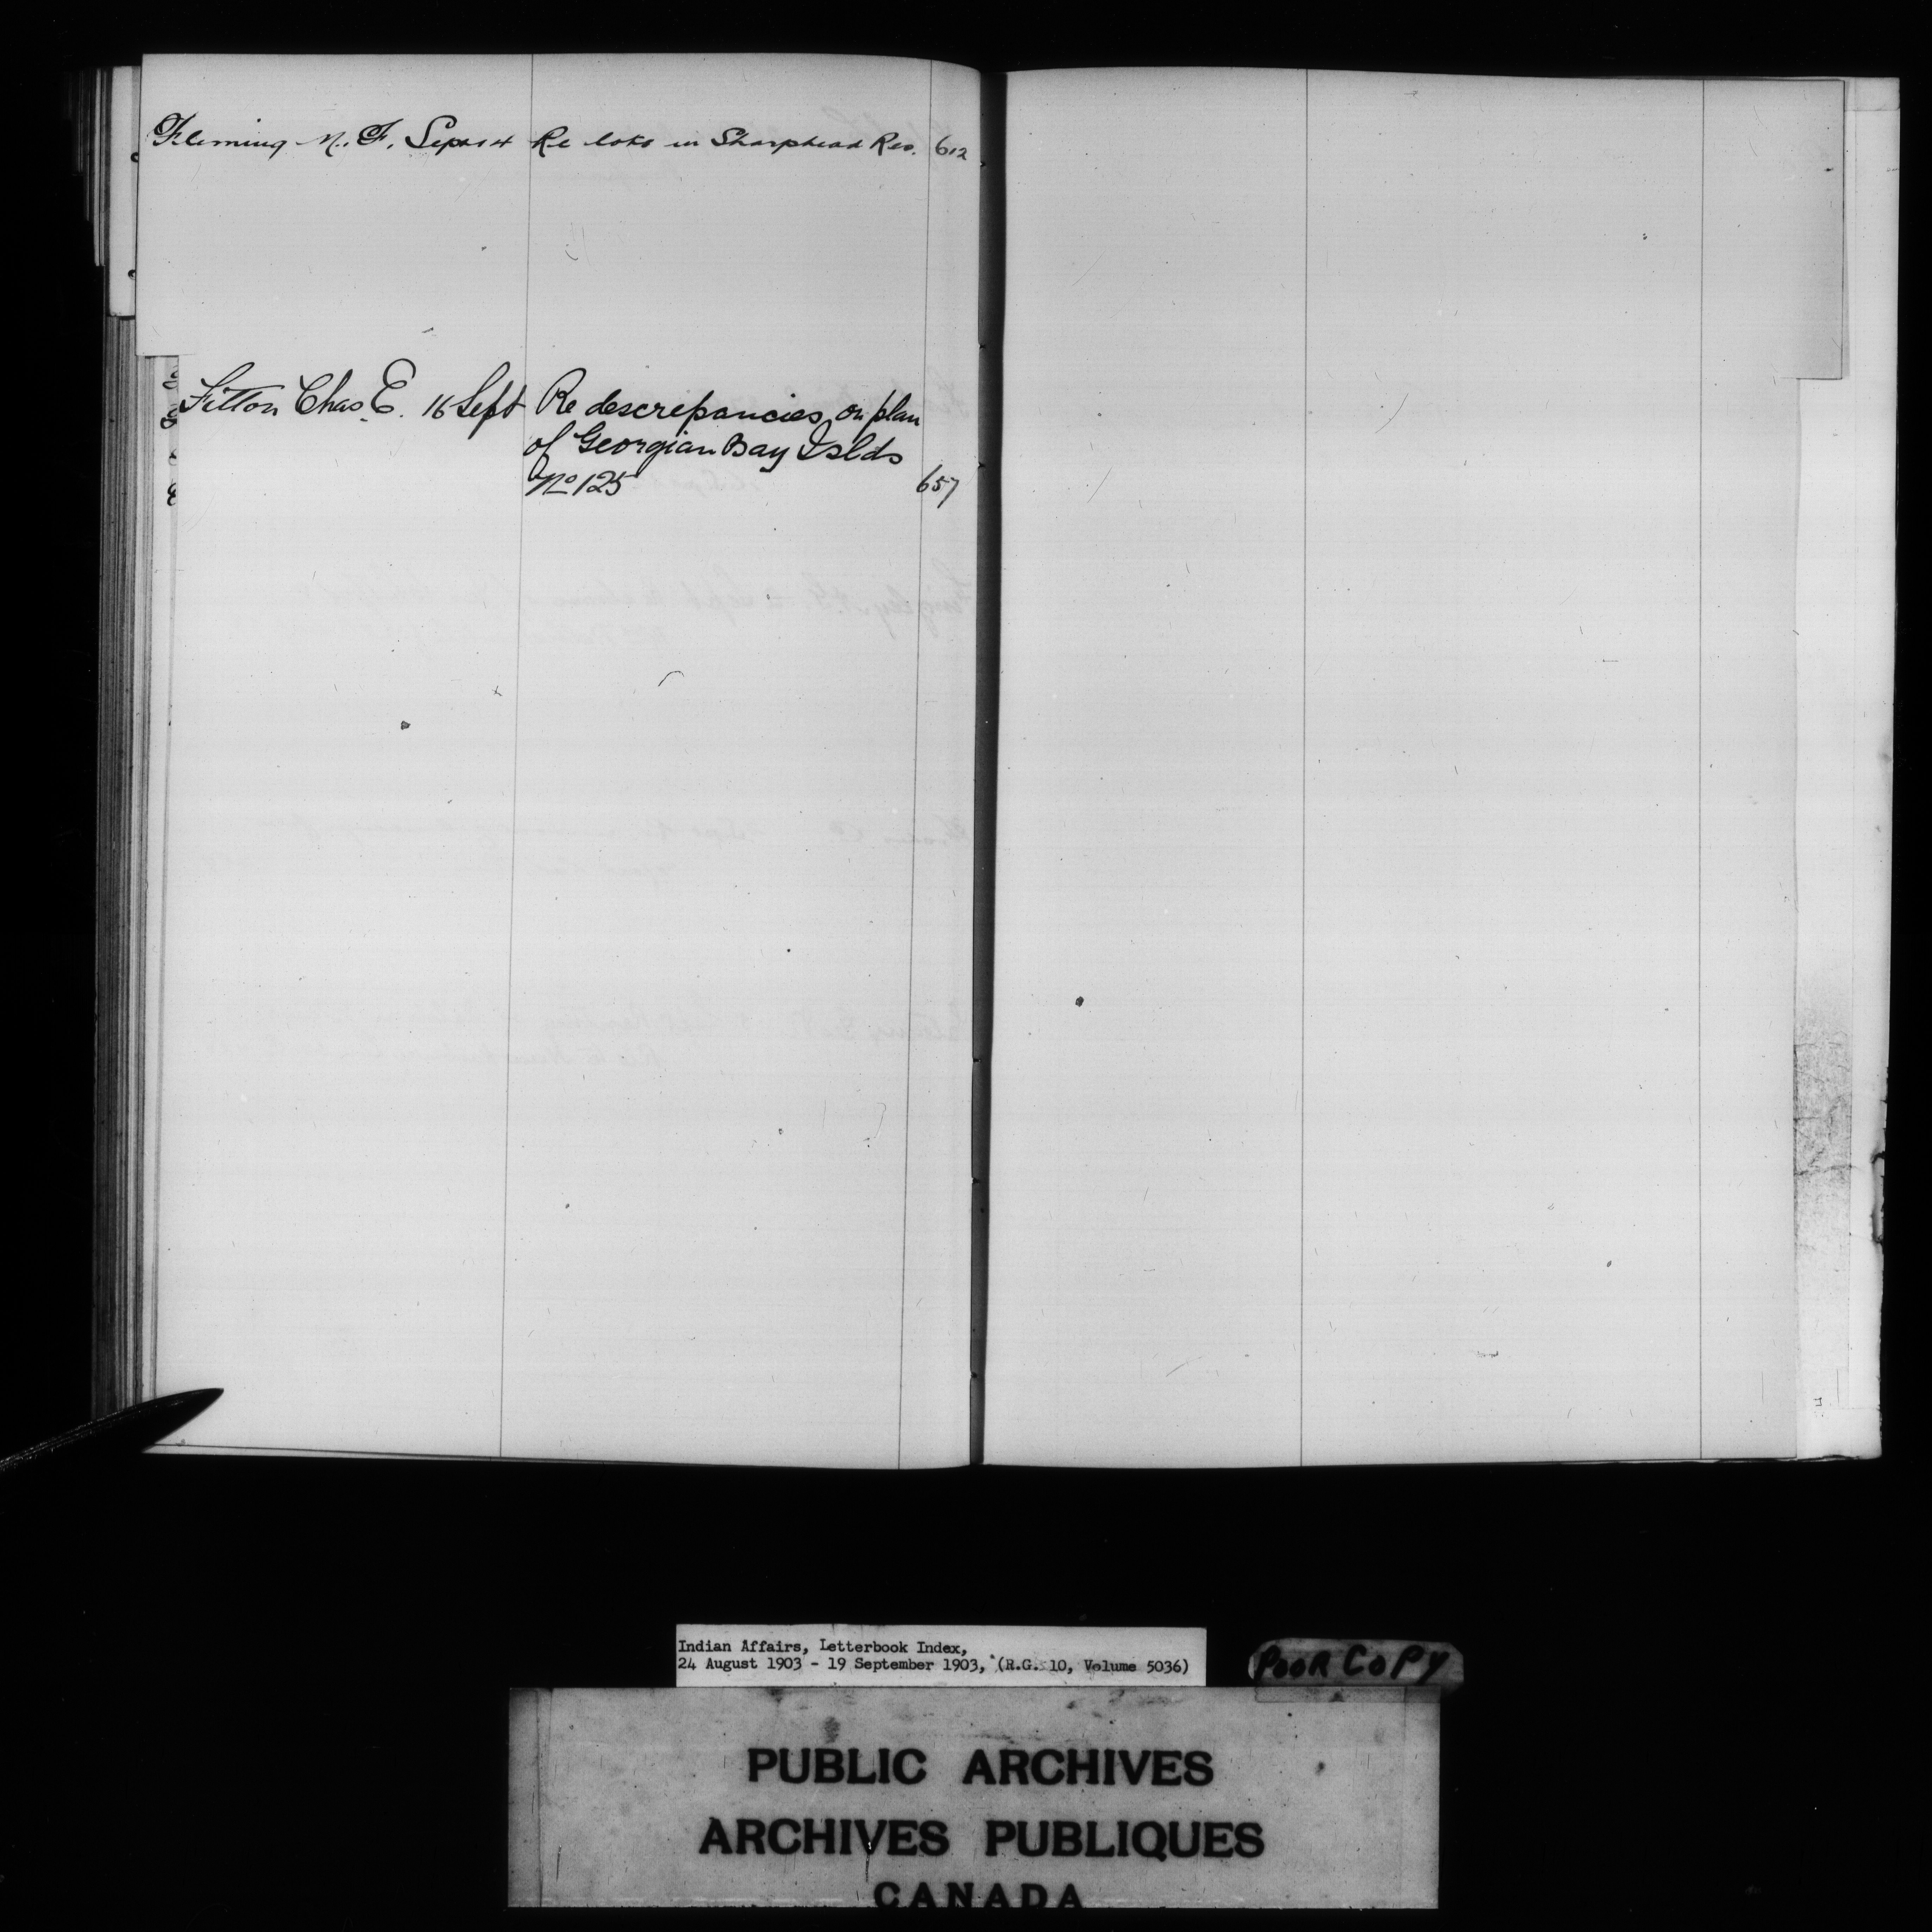 Fleming M. F. Sept 14 Re lots in Sharphead Res. 612
Fitton Chas. E. 16 Sept Re descrepancies on plan
of Georgian Bay Islds
No 125 657
Indian Affairs, Letterbook Index,
24 August 1903 - 19 September 1903, (R.G. 10, Volume 5036)
POOR COPY
PUBLIC ARCHIVES
ARCHIVES PUBLIQUES
CANADA